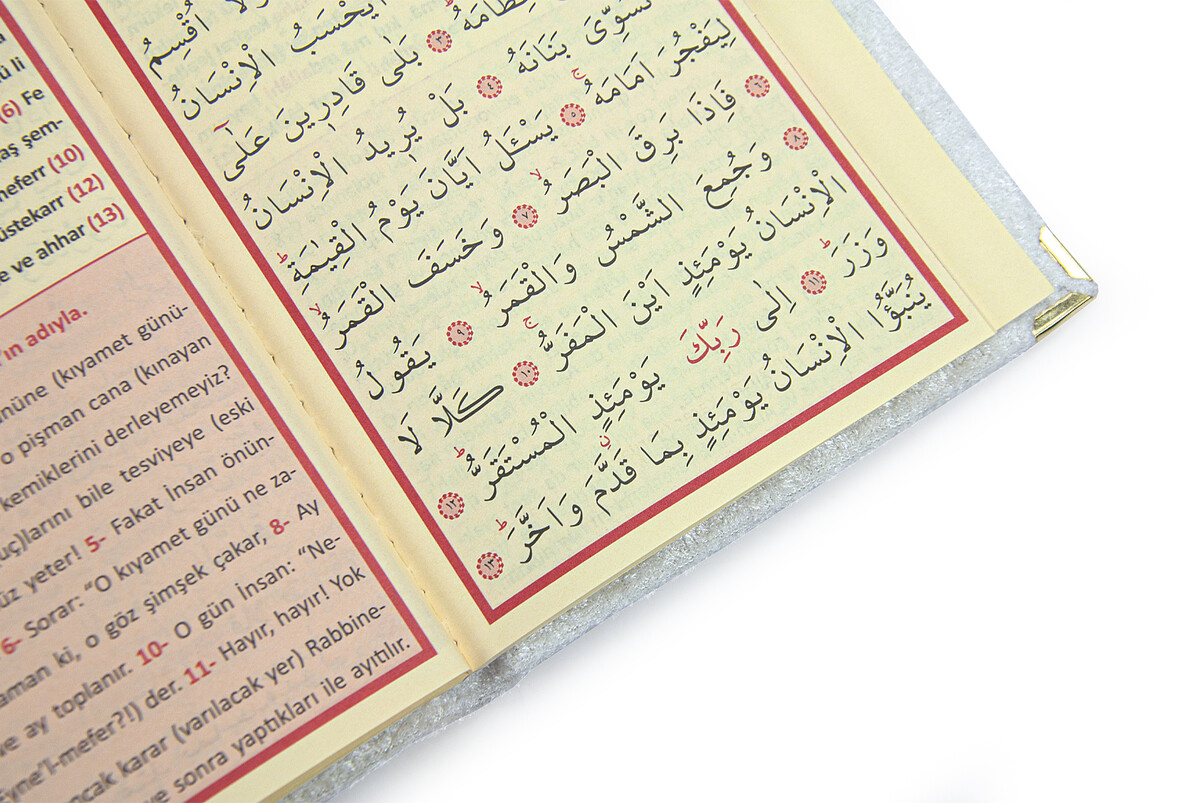 اُقْسِمُ
اَيَحْسَبُ الْاِنْسَانُ
عِظَامَهُ ٣ بَلٰى قَادِرٖينَ عَلٰٓى
نُسَوِّىَ بَنَانَهُ ٤ بَلْ يُرٖيدُ الْاِنْسَانُ
لِيَفْجُرَ اَمَامَهُ ٥ يَسْئَلُ اَيَّانَ يَوْمُ الْقِيٰمَةِ
٦ فَاِذَا بَرِقَ الْبَصَرُ ٧ وَخَسَفَ الْقَمَرُ
٨ وَجُمِعَ الشَّمْسُ وَالْقَمَرُ ٩ يَقُولُ
الْاِنْسَانُ يَوْمَئِذٍ اَيْنَ الْمَفَرُّ ١٠ كَلَّا لَا
وَزَرَ ١١ اِلٰى رَبِّكَ يَوْمَئِذٍ الْمُسْتَقَرُّ ١٢
يُنَبَّؤُا الْاِنْسَانُ يَوْمَئِذٍ بِمَا قَدَّمَ وَاَخَّرَ ١٣
ü li
(6) Fe
aş şem-
neferr (10)
üstekarr (12)
e ve ahhar (13)
'ın adıyla.
ününe (kıyamet günü-
o pişman cana (kınayan
kemiklerini derleyemeyiz?
uç)larını bile tesviyeye (eski
üz yeter! 5- Fakat İnsan önün-
6- Sorar: “O kıyamet günü ne za-
aman ki, o göz şimşek çakar, 8- Ay
ve ay toplanır. 10- O gün İnsan: “Ne-
Eyne’l-mefer?!) der. 11- Hayır, hayır! Yok
ancak karar (varılacak yer) Rabbine-
ve sonra yaptıkları ile ayıtılır.